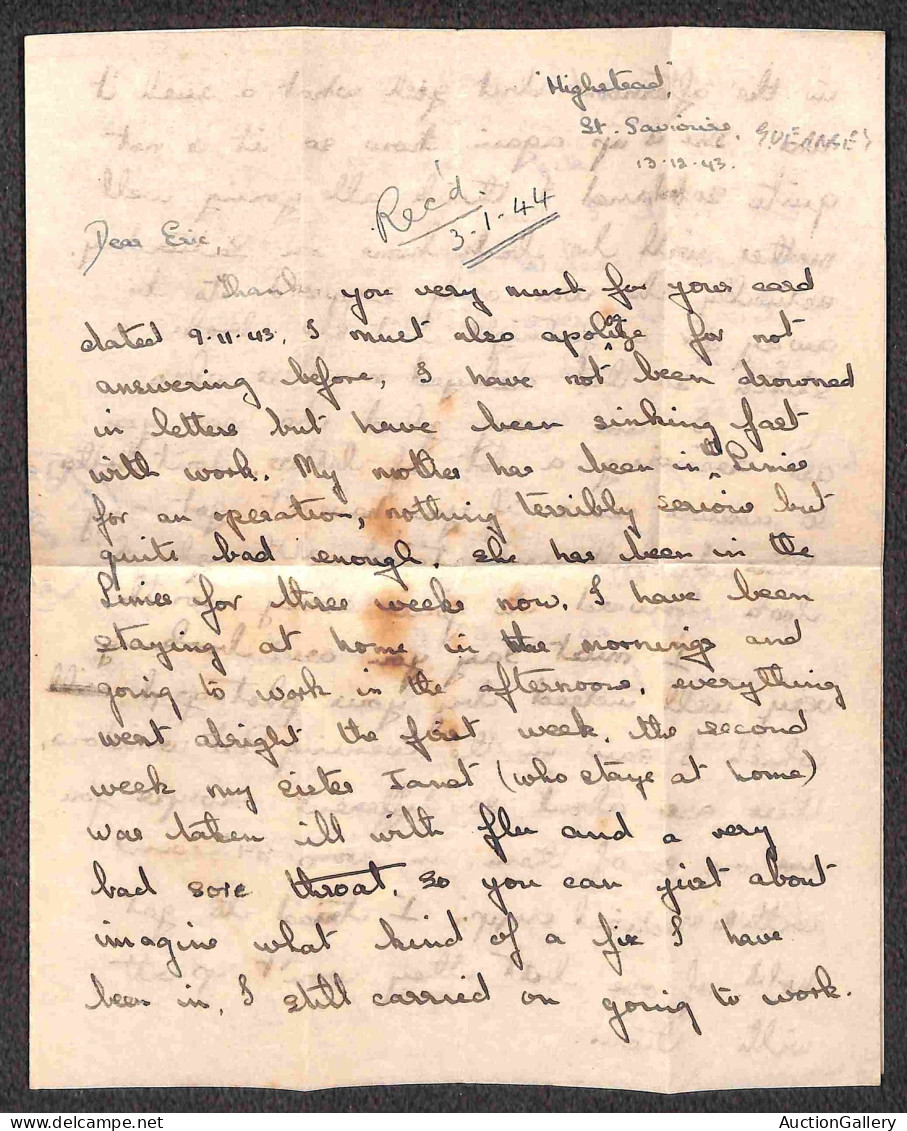 'Highstead',
St. Saviours, GUERNSEY
13-12-43.
Rec'd.
3-1-44
Dear Eric,
Thank you very much for your card
dated 9-11-43, I must also apologize for not
answering before, I have not been drowned
in letters but have been sinking fast
with work. My mother has been in the Limes
for an operation, nothing terribly serious but
quite bad enough. She has been in the
Limes for three weeks now. I have been
staying at home in the mornings and
going to work in the afternoons. everything
went alright the first week, the second
week my sister Janet (who stays at home)
was taken ill with flu and a very
bad sore throat. so you can just about
imagine what kind of a fix I have
been in. I still carried on going to work.
AuctionGallery